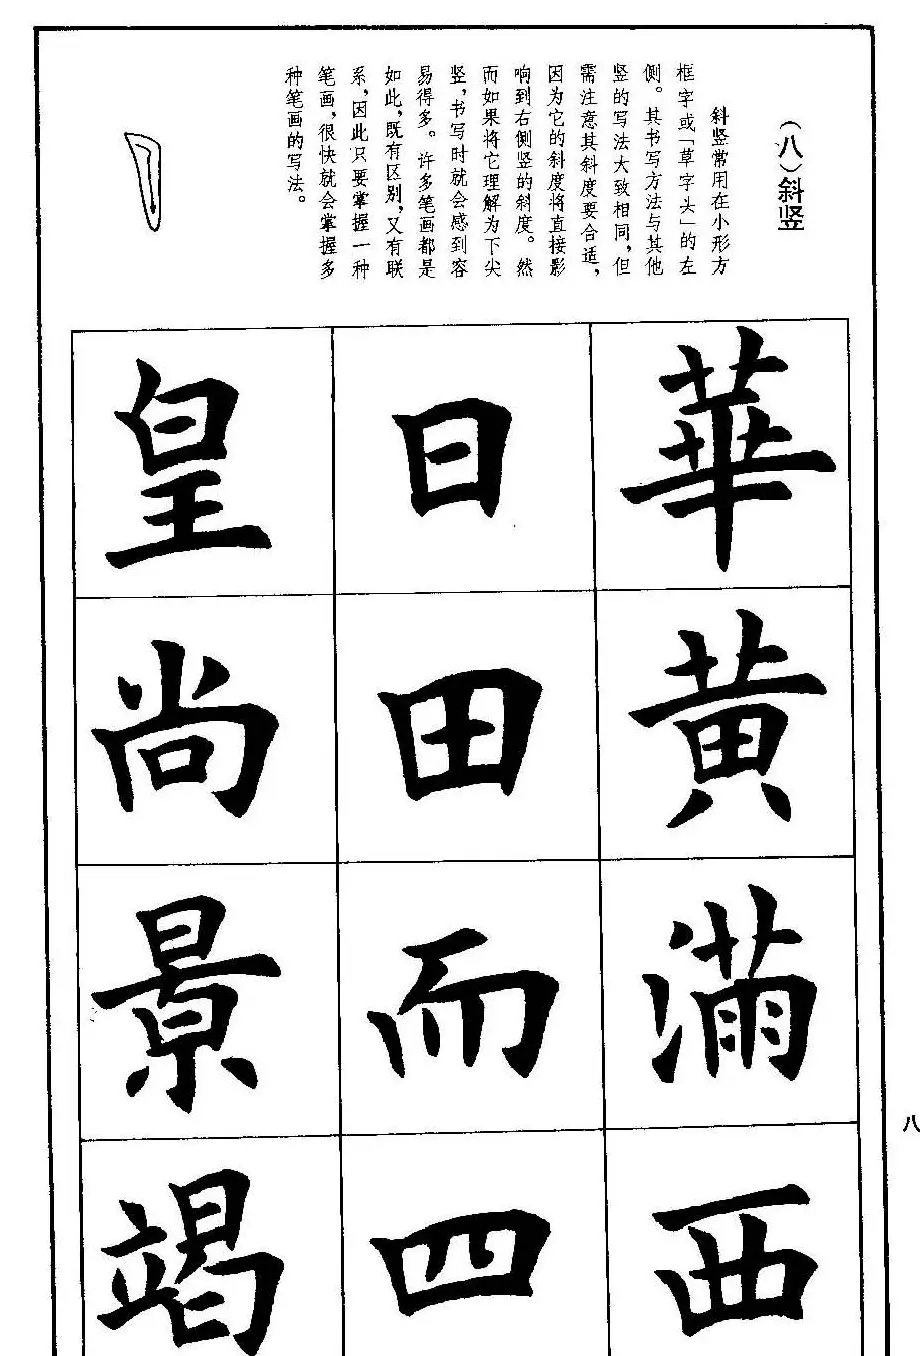 （八）斜竖
斜竖常用在小形方
框字或「草字头」的左
侧。其书写方法与其他
竖的写法大致相同，但
需注意其斜度要合适，
因为它的斜度将直接影
响到右侧竖的斜度。然
而如果将它理解为下尖
竖，书写时就会感到容
易得多。许多笔画都是
如此，既有区别，又有联
系，因此只要掌握一种
笔画，很快就会掌握多
种笔画的写法。
華黄满西
日田而四
皇尚景竭
八